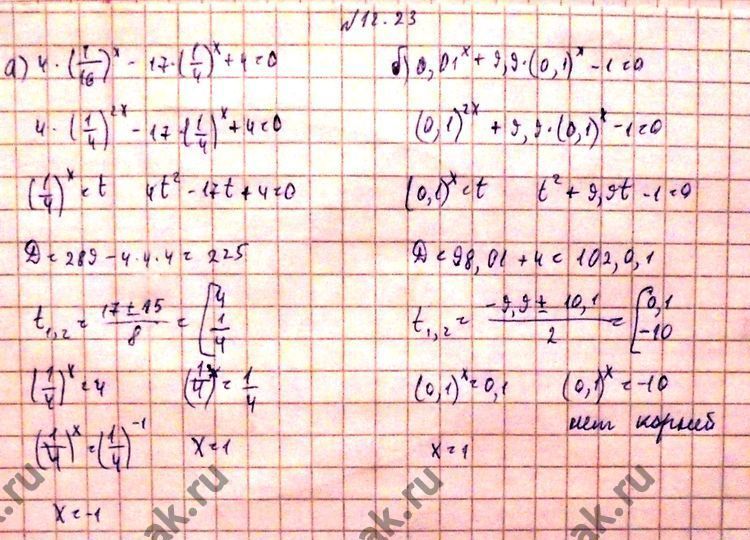 №12.23
а) 4·(1/16)^x - 17·(1/4)^x + 4 = 0
4·(1/4)^2x - 17·(1/4)^x + 4 = 0
(1/4)^x = t 4t² - 17t + 4 = 0
D = 289 - 4·4·4 = 225
t1,2 = (17 ± 15)/8 = [4 1/4
(1/4)^x = 4 (1/4)^x = 1/4
(1/4)^x = (1/4)^-1 x = 1
x = -1
б) 0,01^x + 9,9·(0,1)^x - 1 = 0
(0,1)^2x + 9,9·(0,1)^x - 1 = 0
(0,1)^x = t t² + 9,9t - 1 = 0
D = 98,01 + 4 = 102,0,1
t1,2 = (-9,9 ± 10,1)/2 = [0,1 -10
(0,1)^x = 0,1 (0,1)^x = -10
нет корней
x = 1
ak.ru
ak.ru
ak.ru